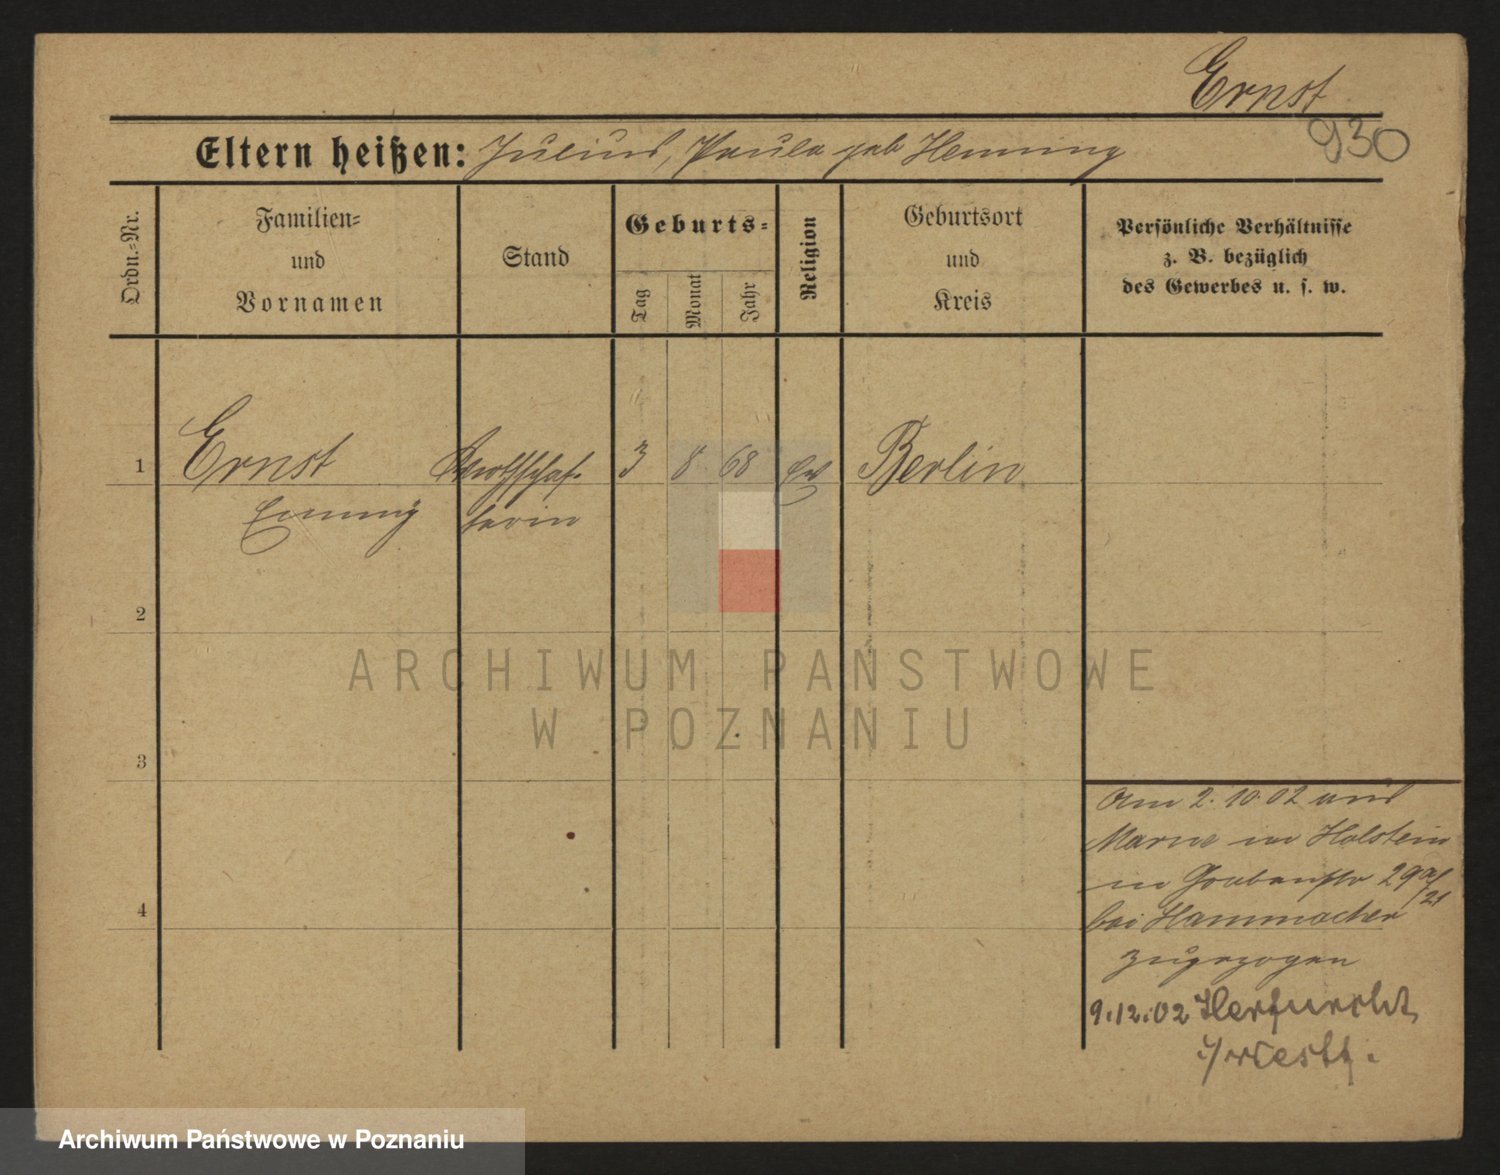 Ernst
930
Eltern heißen: Julius, Paula geb Henning
Ordn.=Nr.
Familien=
und
Vornamen
Stand
Geburts=
Tag
Monat
Jahr
Religion
Geburtsort
und
Kreis
Persönliche Verhältnisse
z. B. bezüglich
des Gewerbes u. s. w.
1 Ernst Wirthschaf= 3 8 68 Ev Berlin
Emmy terin
2
3
4
ARCHIWUM PAŃSTWOWE
W POZNANIU
Am 2.10.02 aus
Marne in Holstein
in Grabenstr 29a/21
bei Hammacher
zugezogen
9.12.02 Herfurcht
i/Westf.
Archiwum Państwowe w Poznaniu